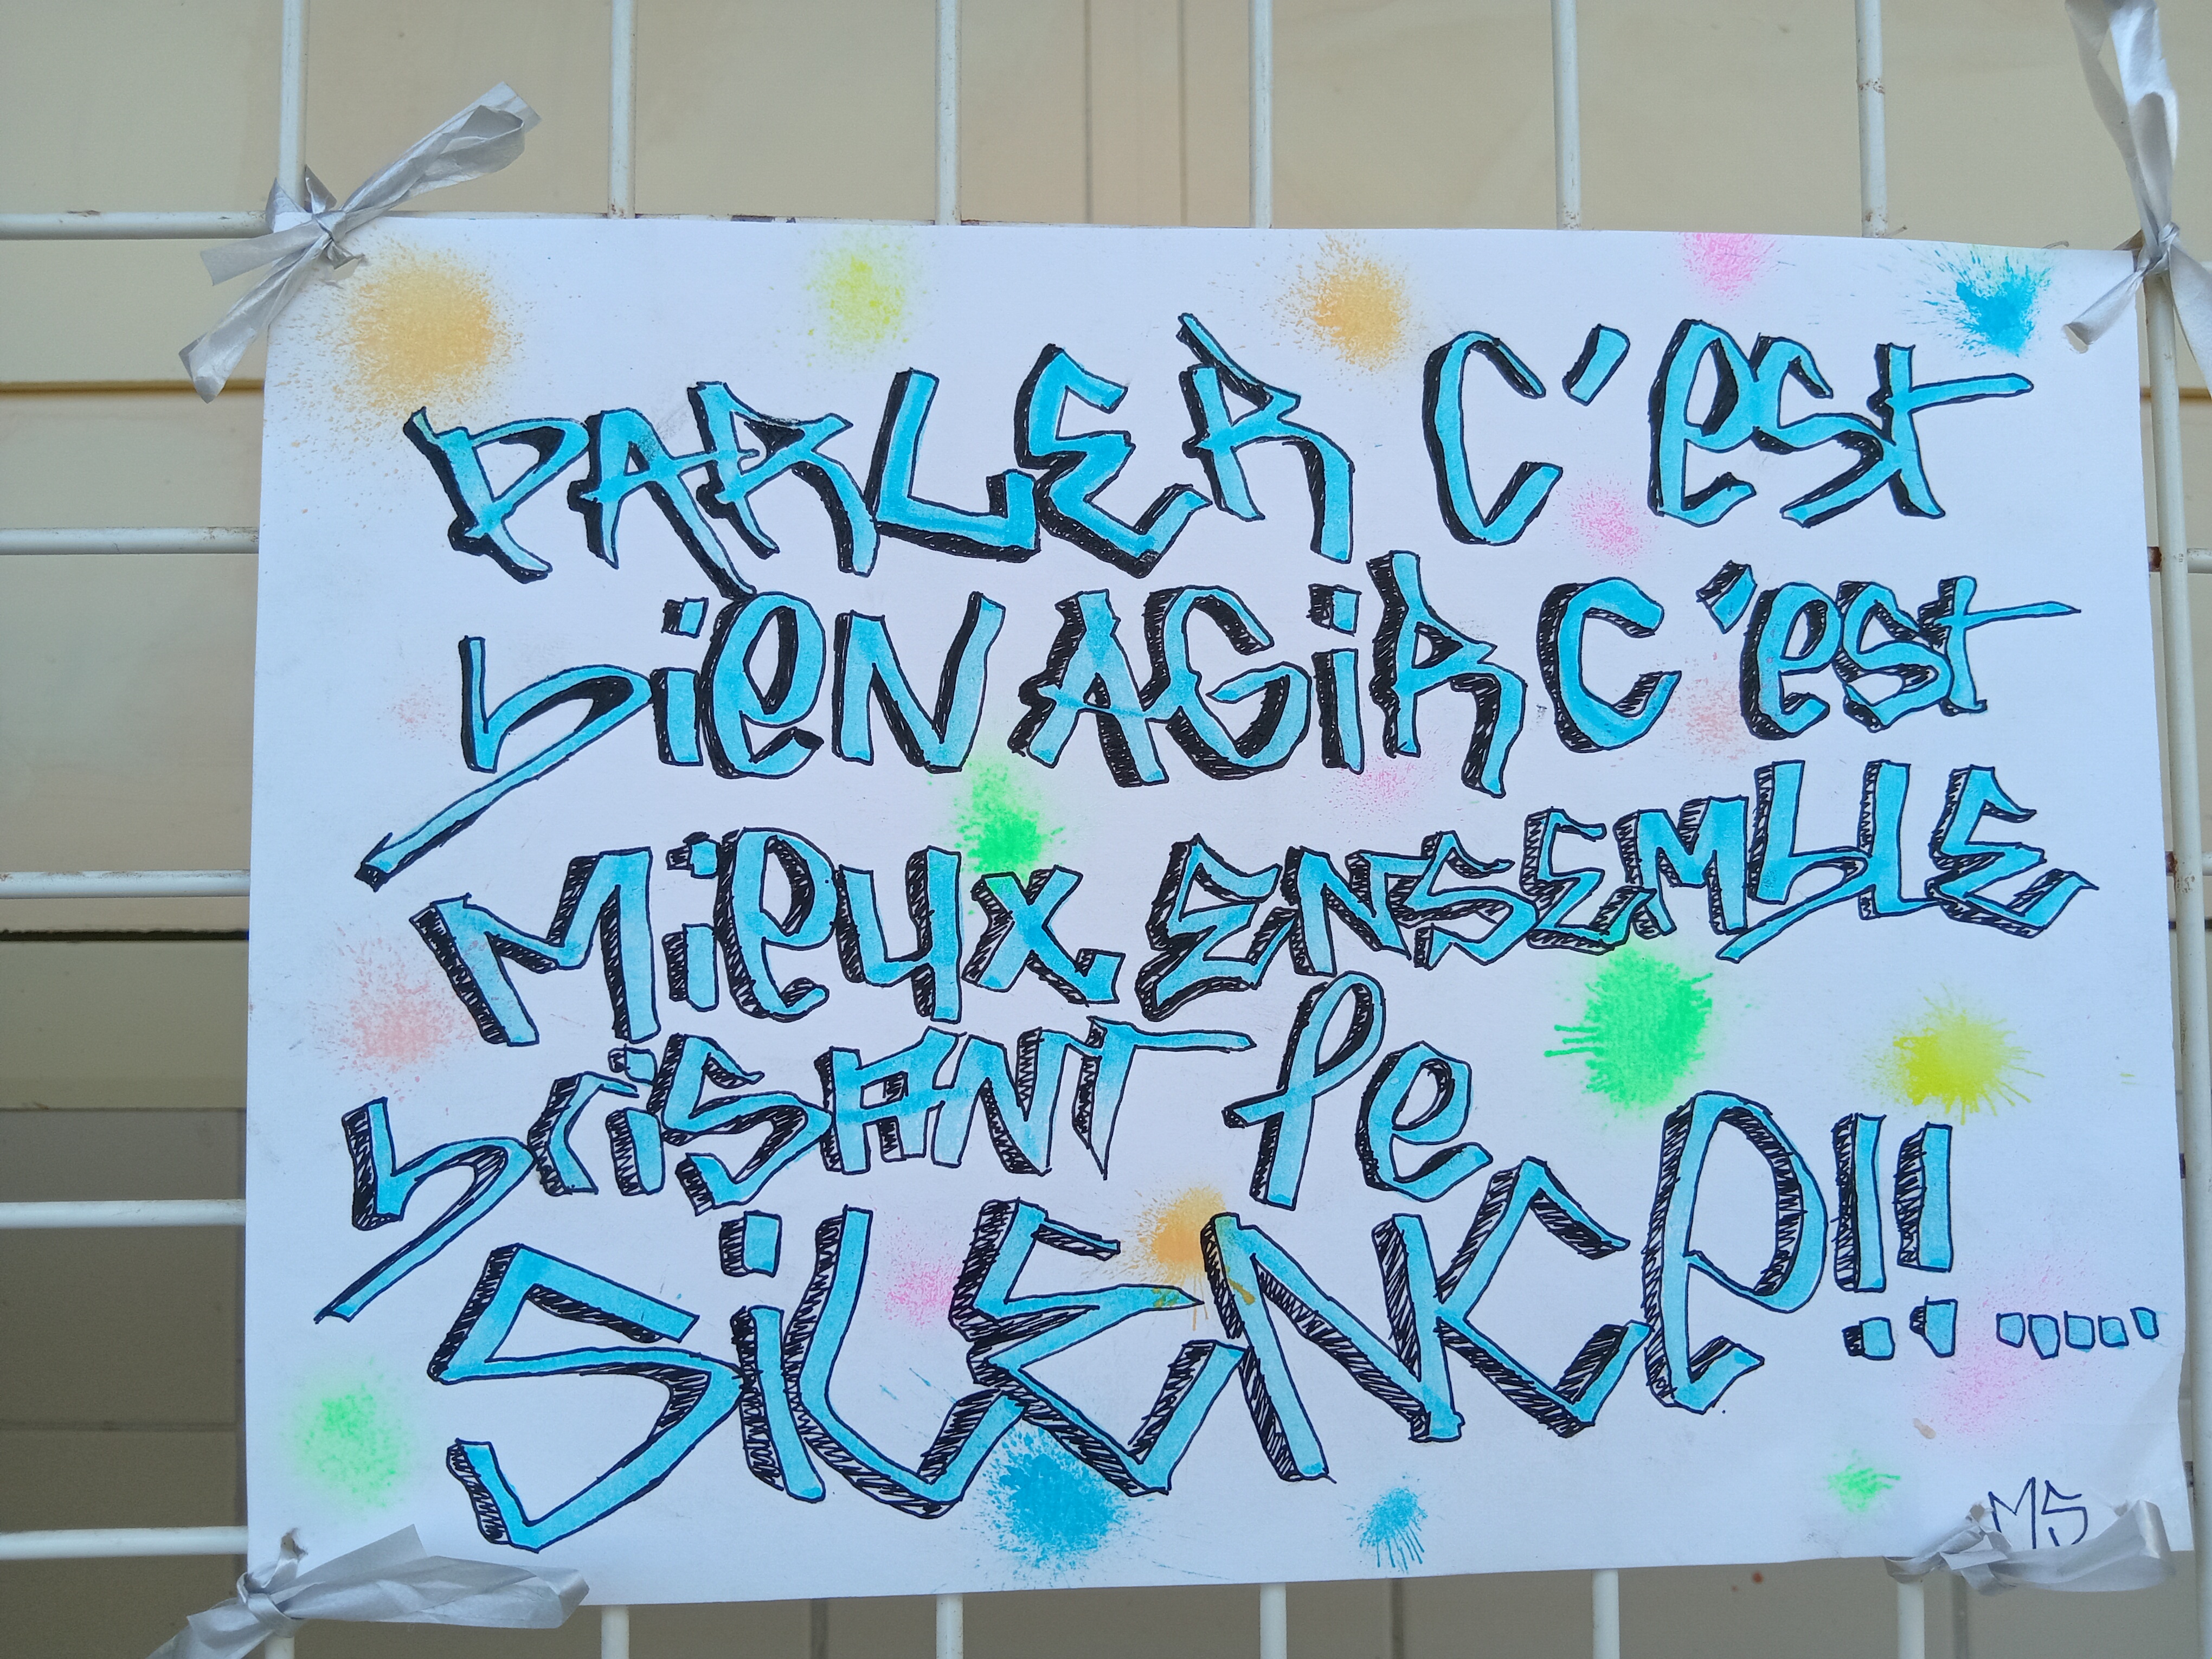 PARLER C'est
biEN AGiR C'est
Mieux ENSEMblE
brisANT le
SiLENCe!! .....
MS